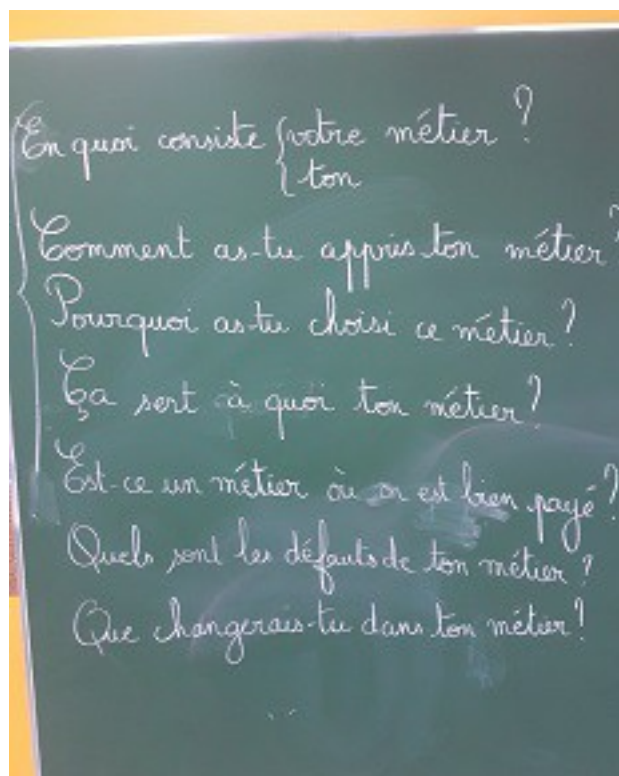 En quoi consiste { votre métier ?
{ ton
Comment as-tu appris ton métier ?
Pourquoi as-tu choisi ce métier ?
Ça sert à quoi ton métier ?
Est-ce un métier où on est bien payé ?
Quels sont les défauts de ton métier ?
Que changerais-tu dans ton métier ?
...